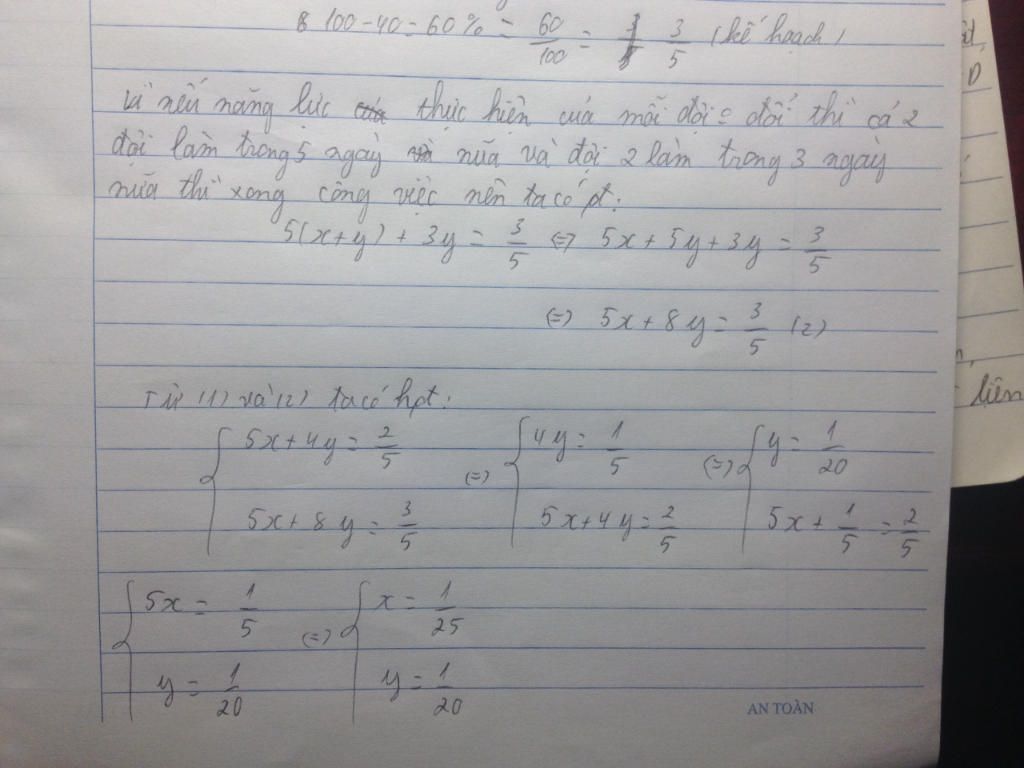 100 - 40 = 60 % = 60/100 = 3/5 (kế hoạch)
Vì nếu năng lực thực hiện của mỗi đội = đối thì cả 2
đội làm trong 5 ngày nữa và đội 2 làm trong 3 ngày
nữa thì xong công việc nên ta có pt:
5(x+y) + 3y = 3/5 (=) 5x + 5y + 3y = 3/5
(=) 5x + 8y = 3/5 (2)
Từ (1) và (2) ta có hpt:
{ 5x + 4y = 2/5 (=) { 4y = 1/5 (=) { y = 1/20
5x + 8y = 3/5 5x + 4y = 2/5 5x + 1/5 = 2/5
{ 5x = 1/5 (=) { x = 1/25
y = 1/20 y = 1/20
AN TOÀN
liên